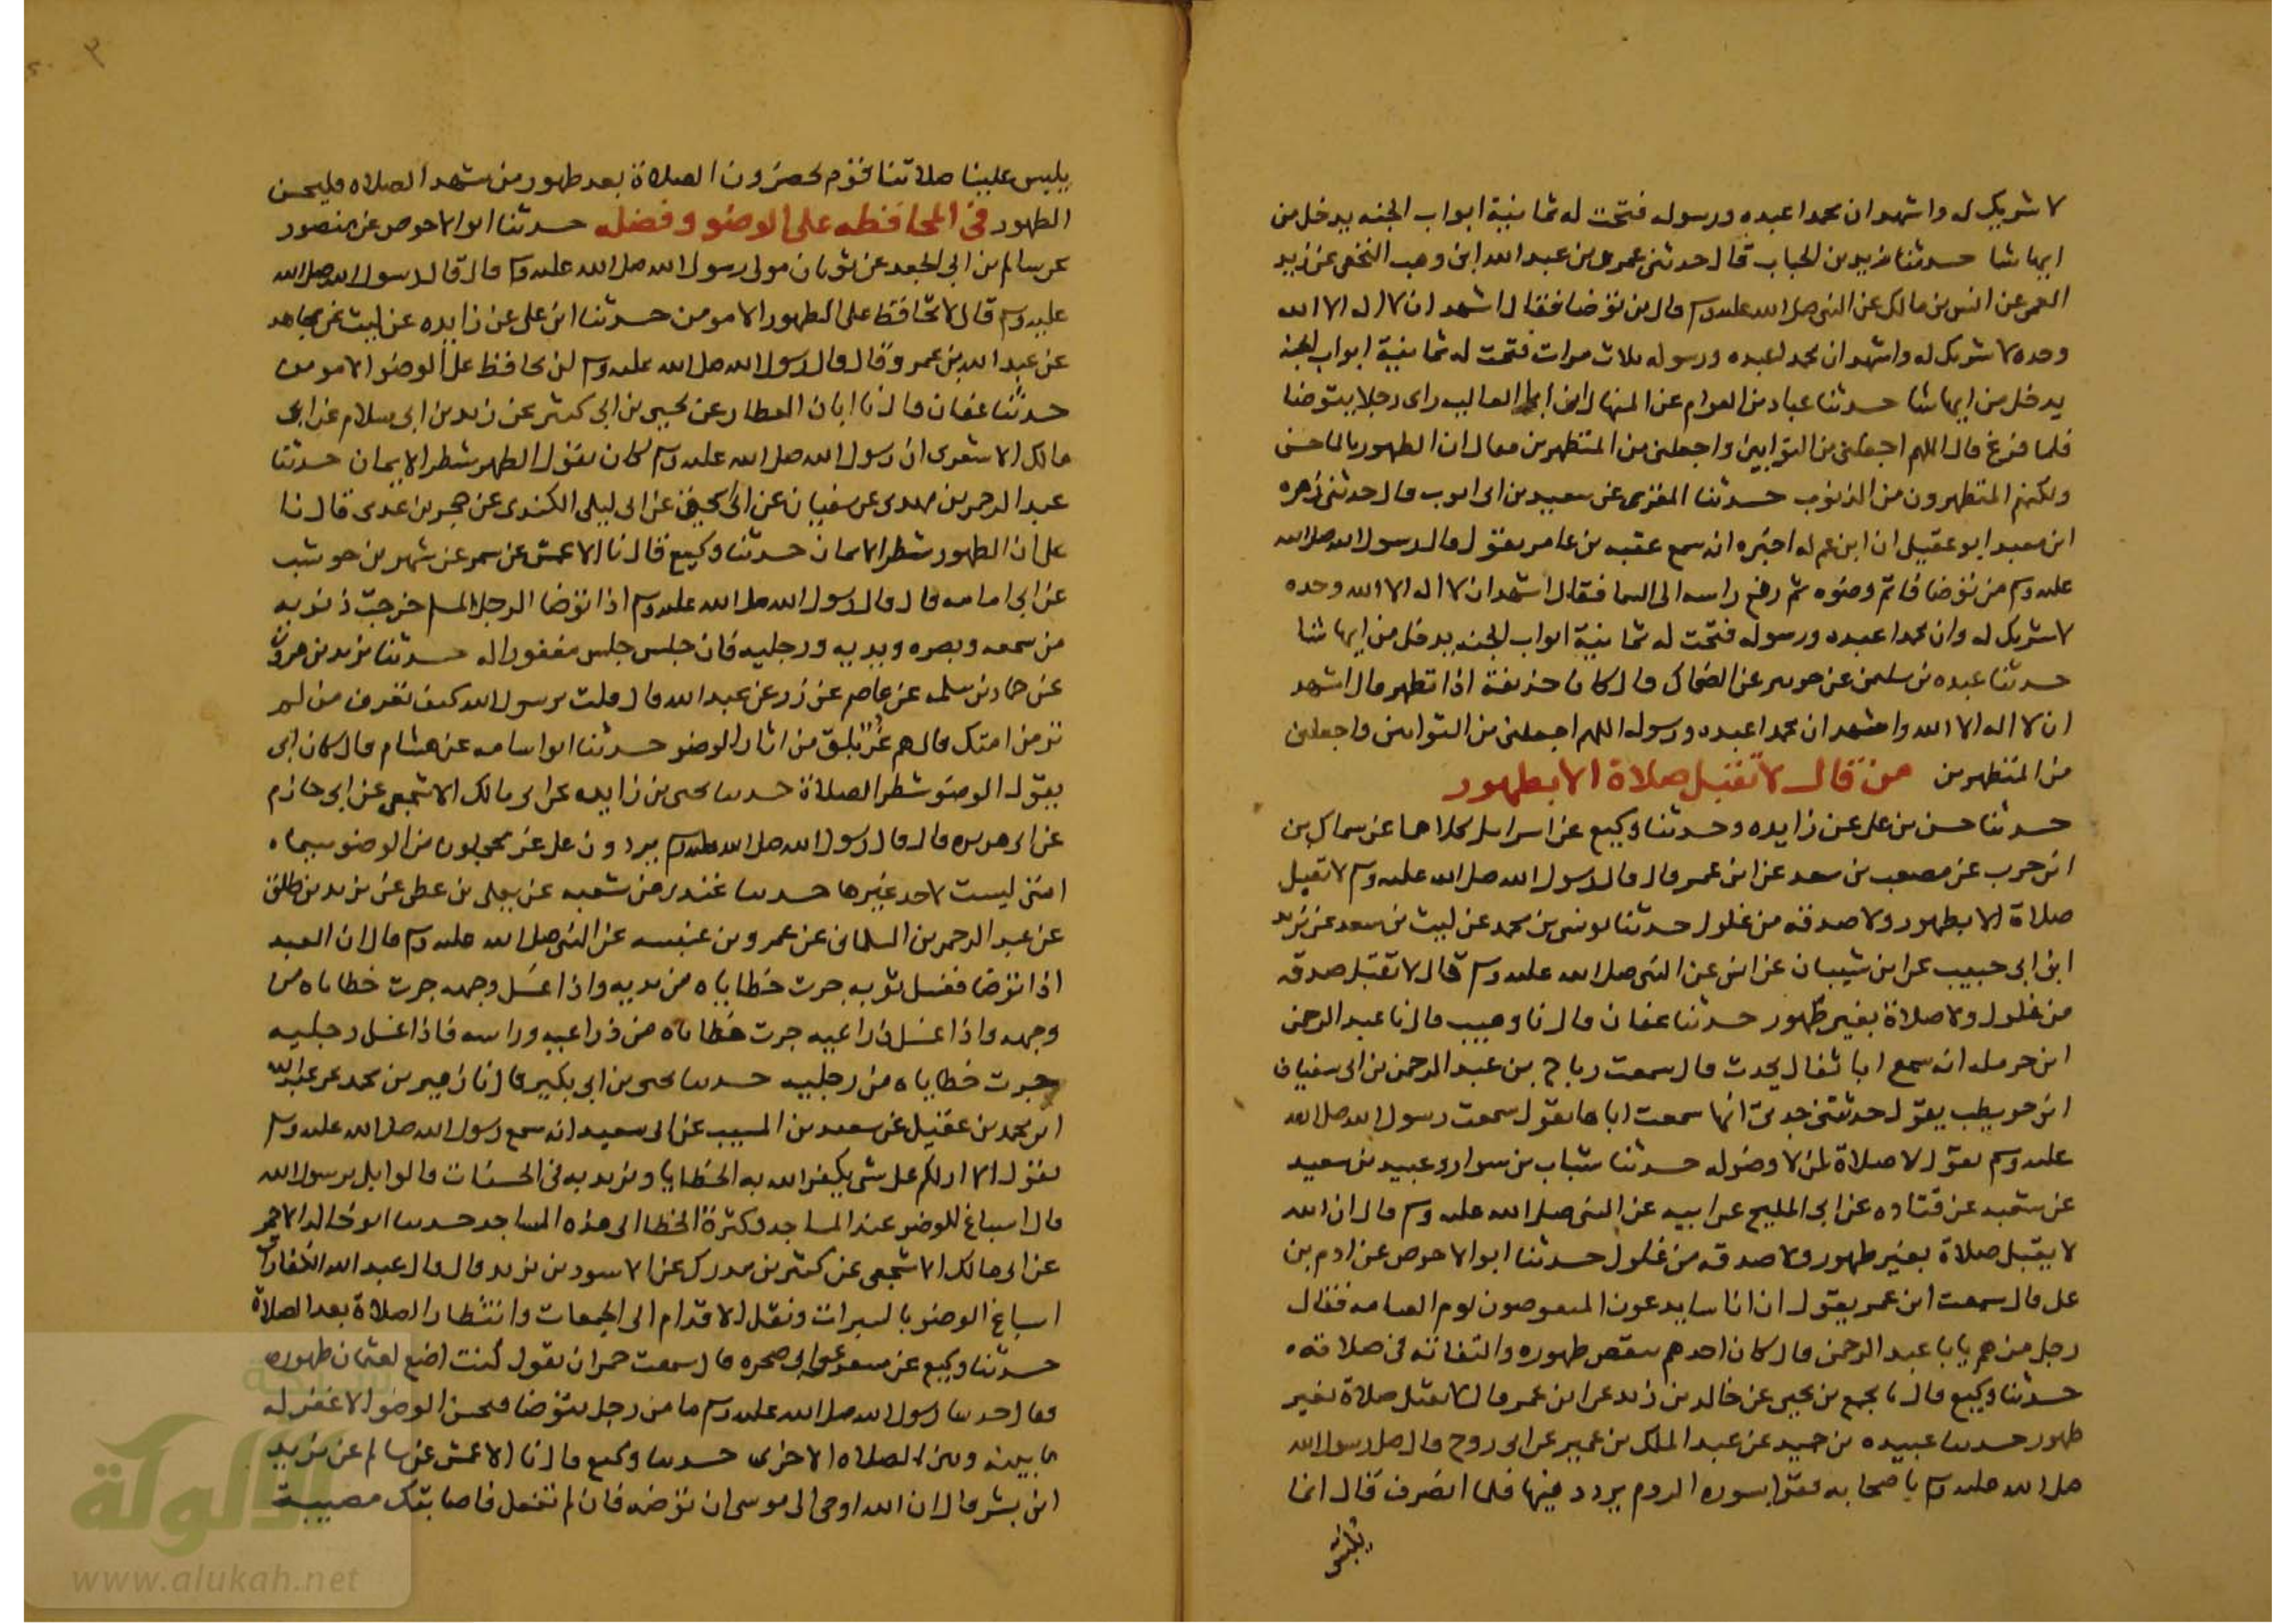 لا شريك له واشهد ان محمدا عبده ورسوله فتحت له ثمانية ابواب الجنه يدخل من
ايها شا حدثنا زيد بن الحباب قال حدثني عمرو بن عبد الله ابن وهب النخعي عن زيد
العمي عن انس بن مالك عن النبي صلى الله عليه وسلم قال من توضا فقال اشهد ان لا اله الا الله
وحده لا شريك له واشهد ان محمدا عبده ورسوله ثلاث مرات فتحت له ثمانية ابواب الجنة
يدخل من ايها شا حدثنا عباد بن العوام عن المنهال عن ابي العاليه راى رجلا يتوضا
فلما فرغ قال اللهم اجعلني من التوابين واجعلني من المتطهرين فقال ان الطهور بالما حسن
ولكنهم المتطهرون من الذنوب حدثنا المقري عن سعيد بن ابي ايوب قال حدثني زهره
ابن معبد ابو عقيل ان ابن عم له اخبره انه سمع عقبه بن عامر يقول قال رسول الله صلى الله
عليه وسلم من توضا فاتم وضوه ثم رفع راسه الى السما فقال اشهد ان لا اله الا الله وحده
لا شريك له وان محمدا عبده ورسوله فتحت له ثمانية ابواب الجنه يدخل من ايها شا
حدثنا عبده بن سليمن عن جويبر عن الضحاك قال كان حذيفة اذا تطهر قال اشهد
ان لا اله الا الله واشهد ان محمدا عبده ورسوله اللهم اجعلني من التوابين واجعلني
من المتطهرين من قال لا تقبل صلاة الا بطهور
حدثنا حسن بن علي عن زايده وحدثنا وكيع عن اسرايل كلاهما عن سماك بن
ابن حرب عن مصعب بن سعد عن ابن عمر قال قال رسول الله صلى الله عليه وسلم لا تقبل
صلاة الا بطهور ولا صدقه من غلول حدثنا يونس بن محمد عن ليث بن سعد عن يزيد
ابن ابي حبيب عن ابن شيبان عن انس عن النبي صلى الله عليه وسلم قال لا تقبل صدقه
من غلول ولا صلاة بغير طهور حدثنا عفان قال نا وهيب قال نا عبد الرحمن
ابن حرمله انه سمع ابا ثفال يحدث قال سمعت رباح بن عبد الرحمن بن ابي سفيان
ابن حويطب يقول حدثتني جدتي انها سمعت اباها يقول سمعت رسول الله صلى الله
عليه وسلم يقول لا صلاة لمن لا وضو له حدثنا شباب بن سوار وعبيد بن سعيد
عن شعبه عن قتاده عن ابي المليح عن ابيه عن النبي صلى الله عليه وسلم قال ان الله
لا يقبل صلاة بغير طهور ولا صدقه من غلول حدثنا ابو الاحوص عن ادم بن
على قال سمعت ابن عمر يقول ان اناسا يدعون المنقوصون يوم القيامه فقال
رجل من هم يا با عبد الرحمن قال كان احدهم ينقص طهوره والتفاته في صلاته
حدثنا وكيع قال نا مجمع بن يحيى عن خالد بن زيد عن ابن عمر قال لا تقبل صلاة بغير
طهور حدثنا عبيده بن حميد عن عبد الملك بن عمير عن ابي روح قال صلى رسول الله
صلى الله عليه وسلم باصحابه فقرا بسوره الروم يردد فيها فلما انصرف قال انما
يلبس
يلبس علينا صلاتنا قوم يحضرون الصلاة بعد طهور من شهد الصلاه فليحسن
الطهور في المحافظه على الوضو وفضله حدثنا ابو الاحوص عن منصور
عن سالم بن ابي الجعد عن ثوبان مولى رسول الله صلى الله عليه وسلم قال قال رسول الله صلى الله
عليه وسلم قال لا تحافظ على الطهور الا مومن حدثنا ابن علي عن زايده عن ليث عن مجاهد
عن عبد الله بن عمرو قال قال رسول الله صلى الله عليه وسلم لن يحافظ على الوضو الا مومن
حدثنا عفان قال نا ابان العطار عن يحيى بن ابي كثير عن زيد بن ابي سلام عن ابي
مالك الاشعري ان رسول الله صلى الله عليه وسلم كان يقول الطهر شطر الايمان حدثنا
عبد الرحمن بن مهدي عن سفيان عن ابي اسحق عن ابي ليلى الكندي عن حجر بن عدي قال نا
على ان الطهور شطر الايمان حدثنا وكيع قال نا الاعمش عن سمر عن شهر بن حوشب
عن ابي امامه قال قال رسول الله صلى الله عليه وسلم اذا توضا الرجل المسلم خرجت ذنوبه
من سمعه وبصره ويديه ورجليه فان جلس جلس مغفورا له حدثنا يزيد بن هرون
عن حماد بن سلمه عن عاصم عن زر عن عبد الله قال قلت يرسول الله كيف تعرف من لم
تر من امتك قال هم غر بلق من اثار الوضو حدثنا ابو اسامه عن هشام قال كان ابي
يقول الوضو شطر الصلاة حدثنا يحيى بن زايده عن ابي مالك الاشجعي عن ابي حازم
عن ابي هريره قال قال رسول الله صلى الله عليه وسلم يردون علي غر محجلون من الوضو سيماه
امتي ليست لاحد غيرها حدثنا غندر عن شعبه عن يعلى بن عطى عن يزيد بن طلق
عن عبد الرحمن بن السلماني عن عمرو بن عنبسه عن النبي صلى الله عليه وسلم قال ان العبد
اذا توضا فغسل يديه جرت خطاياه من يديه واذا غسل وجهه جرت خطاياه من
وجهه واذا غسل ذراعيه جرت خطاياه من ذراعيه وراسه فاذا غسل رجليه
جرت خطاياه من رجليه حدثنا يحيى بن ابي بكير قال نا زهير بن محمد عن عبد الله
ابن محمد بن عقيل عن سعيد بن المسيب عن ابي سعيد انه سمع رسول الله صلى الله عليه وسلم
يقول الا ادلكم على شي يكفر الله به الخطايا ويزيد به في الحسنات قالوا بلى يرسول الله
قال اسباغ للوضو عند المساجد وكثرة الخطا الى هذه المساجد حدثنا ابو خالد الاحمر
عن ابي مالك الاشجعي عن كثير بن مدرك عن الاسود بن يزيد قال قال عبد الله الكفارات
اسباغ الوضو بالسبرات ونقل الاقدام الى الجمعات وانتظار الصلاة بعد الصلاة
حدثنا وكيع عن مسعر عن ابي صخره قال سمعت حمران يقول كنت اضع لعثمان طهوره
فقال حدثنا رسول الله صلى الله عليه وسلم ما من رجل يتوضا فيحسن الوضو الا غفر له
ما بينه وبين الصلاه الاخرى حدثنا وكيع قال نا الاعمش عن سالم عن يزيد
ابن بشر قال ان الله اوحى الى موسى ان توضه فان لم تفعل فاصابتك مصيبة
شبكة
الألوكة
www.alukah.net